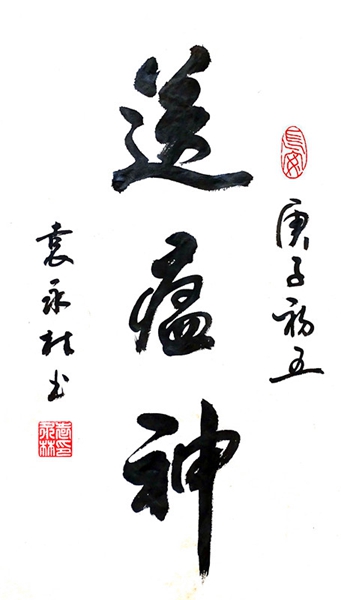 长安
庚子初五
送瘟神
袁永林书
袁印永林